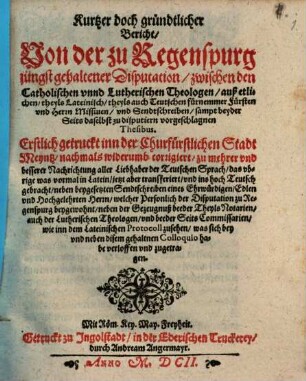 Kurtzer doch gründtlicher
Bericht/
Von der zu Regenspurg
jüngst gehaltener Disputation/ zwischen den
Catholischen vnnd Lutherischen Theologen/ auß etli-
chen/ theyls Lateinisch/ theyls auch Teutschen fürnemmer Fürsten
vnd Herrn Missiuen/ vnd Sendtschreiben/ sampt beyder
Seits daselbst zu disputiern vorgeschlagnen
Thesibus.
Erstlich getruckt inn der Churfürstlichen Statt
Meyntz/ nachmals widerumb corrigiert/ zu mehrer vnd
besserer Nachrichtung aller Liebhaber der Teutschen Sprach/ das vb-
rige was vormal in Latein/ jetzt aber transferiert/ vnd ins hoch Teutsch
gebracht/ neben beygesetzten Sendtschreiben eines Ehrwürdigen/ Edlen
vnd Hochgelehrten Herrn/ welcher Personlich der Disputation zu Re-
genspurg beygewohnt/ neben der Gezeugnuß beeder Theyls Notarien/
auch der Lutherischen Theologen/ vnd beeder Seits Commissarien/
wie inn dem Lateinischen Protocoll zusehen/ was sich bey
vnd neben disem gehaltnen Colloquio ha-
be verloffen vnd zugetra-
gen.
Mit Röm. Key. May. Freyheit.
Getruckt zu Ingolstadt/ in der Ederischen Truckerey/
durch Andream Angermayr.
Anno M. DCII.